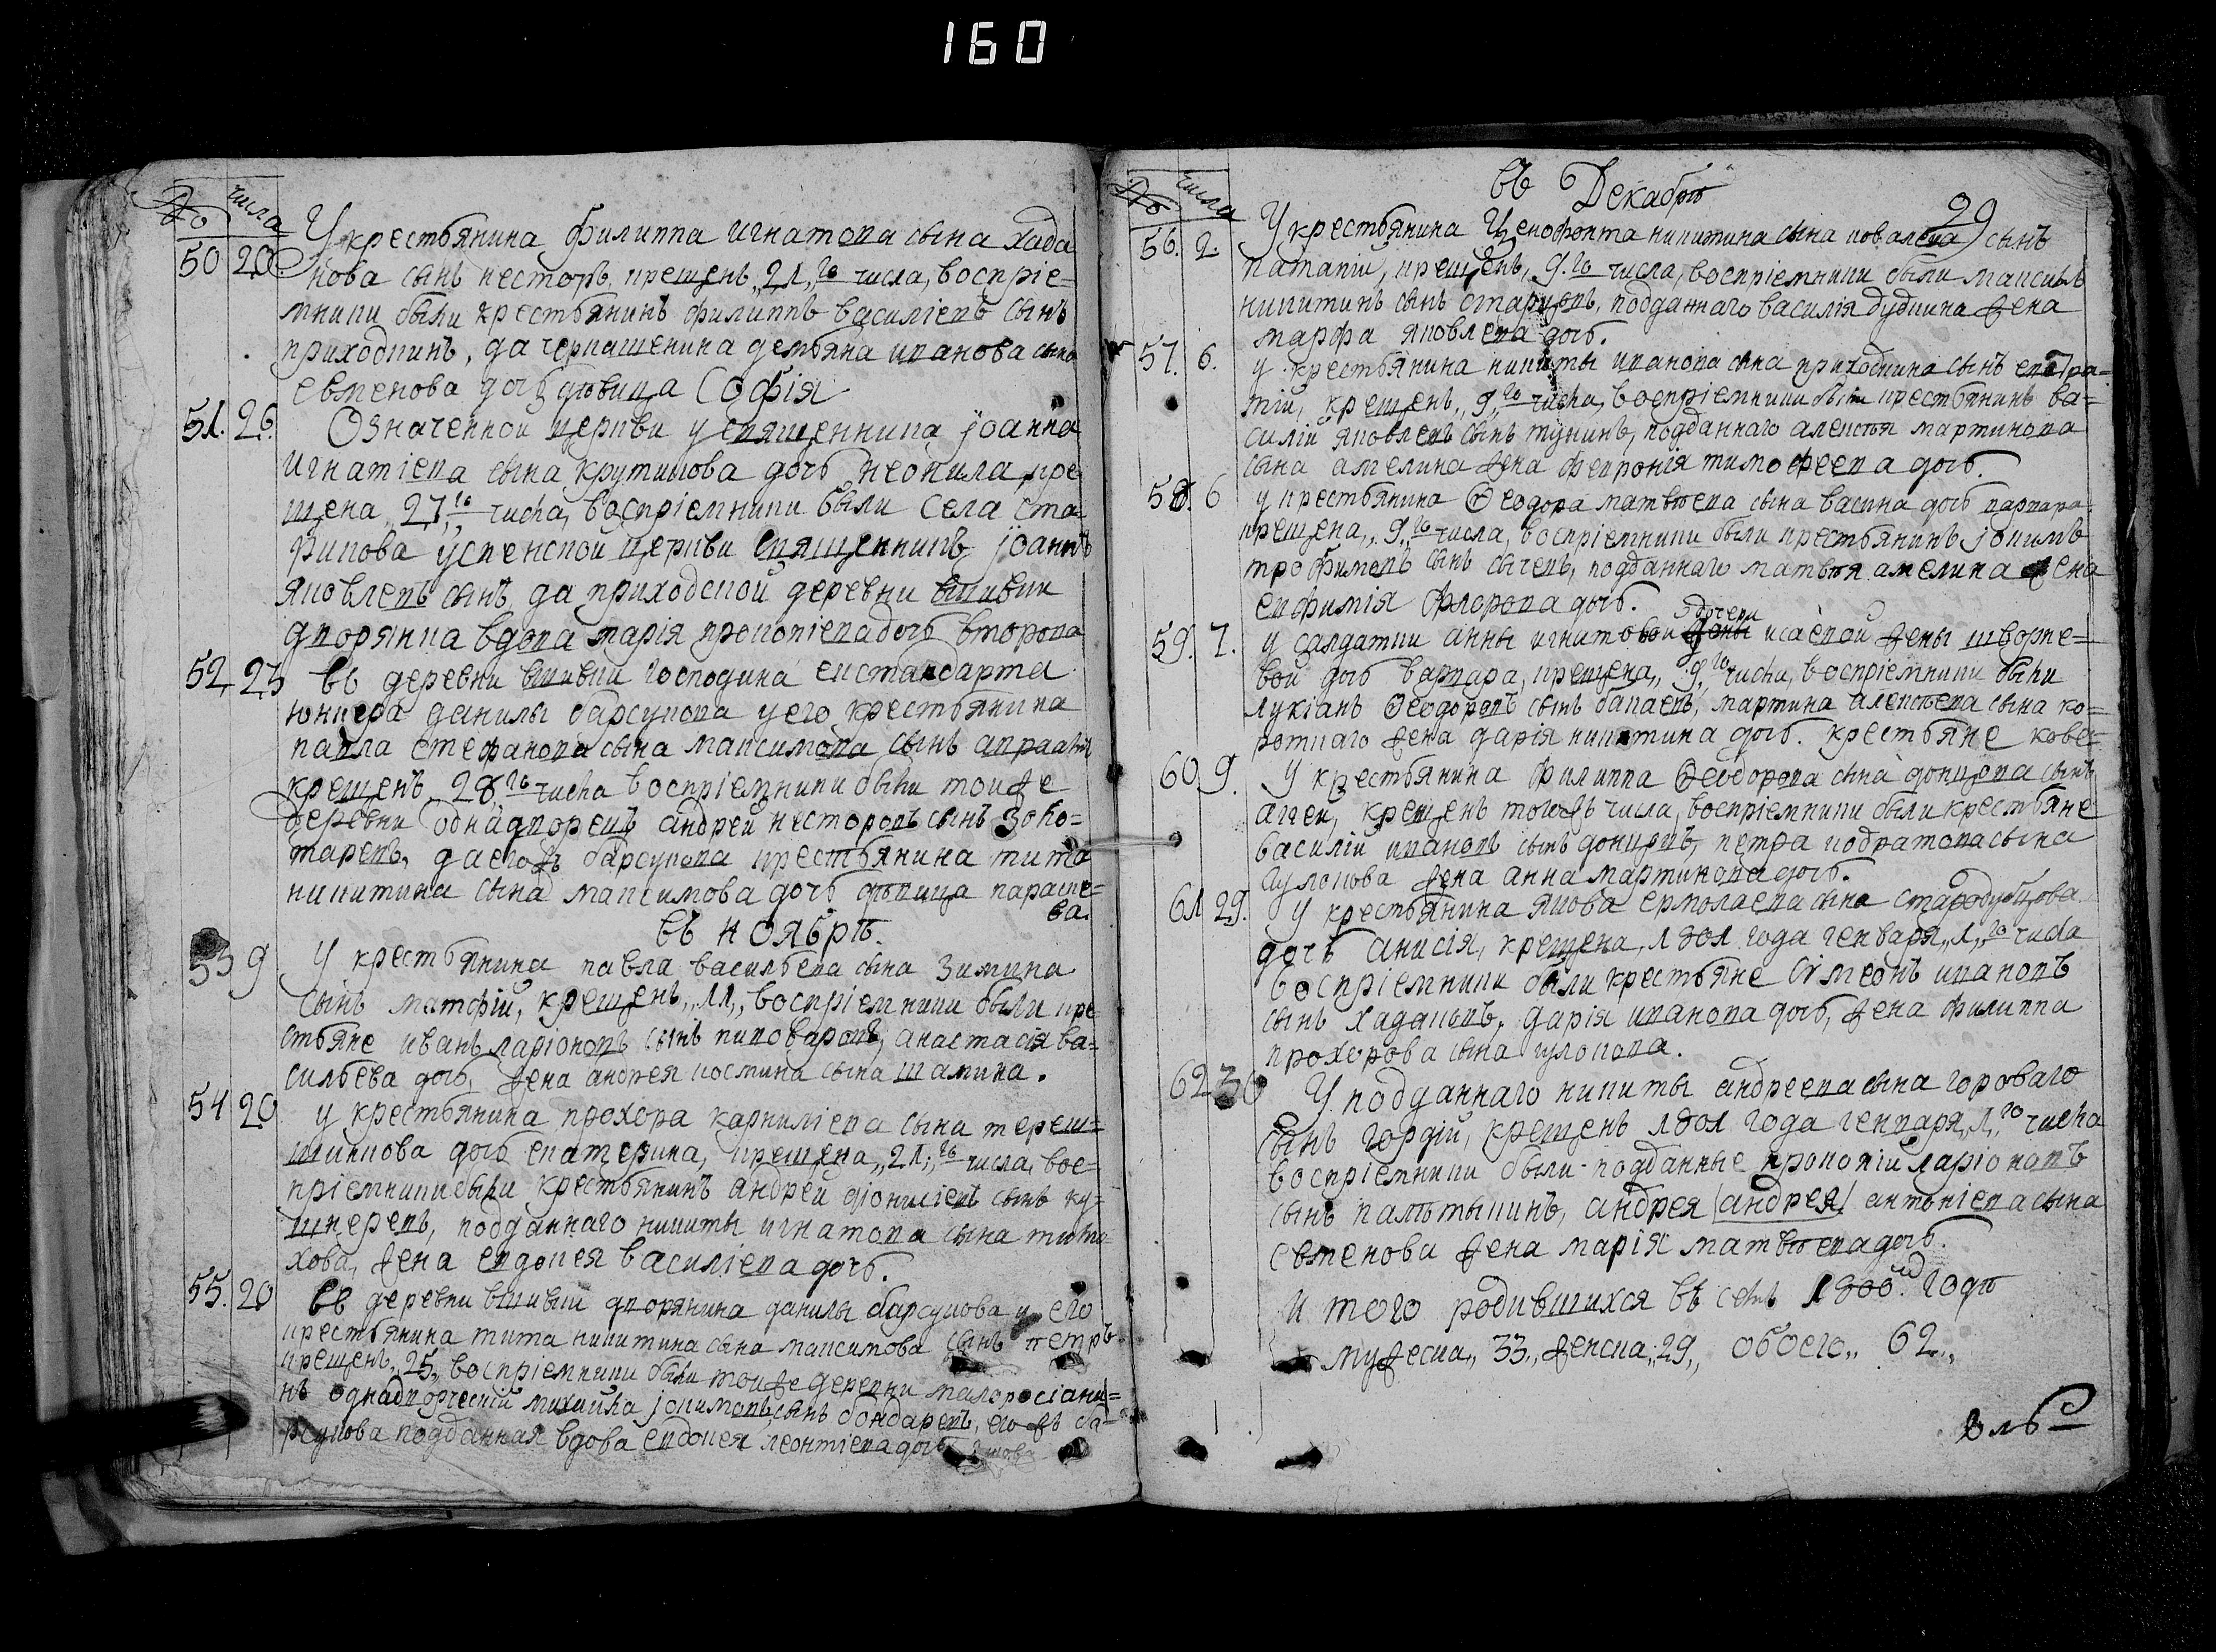 160
№ числа
50 20 У крестьянина филиппа игнатова сына хада
нова сынъ несторъ крещенъ „21„го числа, воспріе=
мники были крестьянинъ филиппъ василіевъ сынъ
приходкинъ, да черкашенина демьяна иванова сына
евтенова дочь дѣвица Софія
51. 26. Означенной церкви у священника іоанна
игнатіева сына крутикова дочь неонила, кре
щена „27„го числа, воспріемники были села ста
рикова успенской церкви священникъ іоаннъ
яковлевъ сынъ да приходской деревни вшивки
дворянка вдова марія прокопіева дочь второва
52. 23 въ деревни вшивки господина
юнкера данилы барсукова у его крестьянина
павла стефанова сына максимова сынъ
крещенъ „28го числа воспріемники были тоиже
деревни однадворецъ андрей несторовъ сынъ Золо=
таревъ, да егожъ барсукова крестьянина тита
никитина сына максимова дочь дѣвица параске=
ва.
въ ноябрѣ.
53 9 У крестьянина павла васильева сына зимина
сынъ матфій, крещенъ „11„ воспріемники были кре
стьяне иванъ ларіоновъ сынъ пивоваровъ, анастасія ва=
сильева дочь, жена андрея костина сына шалина.
54 20 у крестьянина прохора карниліева сына тереш=
шинкова дочь екатерина, крещена „21„го числа, вос=
пріемники были крестьянинъ андрей діонисіевъ сынъ ку=
шнеревъ, подданнаго никиты игнатова сына тити
хова, жена евдокея василіева дочь.
55. 20 въ деревни вшивки дворянина данилы барсукова у его
крестьянина тита никитина сына максимова сынъ петръ
крещенъ „25„ воспріемники были тоиже деревни малоросіани=
нъ однадворческій михайла іокимовъ сынъ бондаревъ, его жъ ба=
рсукова подданная вдова евдокея леонтіева дочь
№ числа
въ Декабрѣ
29
56. 2. У крестьянина Ксенофонта никитина сына ковалева сынъ
патапій, крещенъ, 9.го числа, воспріемники были максимъ
никитинъ сынъ старцовъ, подданнаго василія дудкина жена
марфа яковлева дочь.
57. 6. у крестьянина никиты иванова сына приходкина сынъ евстра=
тій, крещенъ, „9„го числа, воспріемники были крестьянинъ ва=
силій яковлевъ сынъ тунинъ, подданнаго алексѣя мартинова
сына амелина жена февронія тимофеева дочь.
58. 6 у крестьянина Ѳеодора матвѣева сына васина дочь варвара
крещена „9„го числа, воспріемники были крестьянинъ іокимъ
трофимовъ сынъ сычевъ, подданнаго матвѣя амелина жена
евфимія флорова дочь.
59. 7. у салдатки анны игнатовой дочери исаевой жены шворне=
вой дочь варвара, крещена „9„го числа, воспріемники были
лукіанъ Ѳеодоровъ сынъ бакаевъ, мартина алексѣева сына ко=
роткаго жена дарія никитина дочь. крестьяне
60 9. У крестьянина филиппа Ѳеодорова сына донцова сынъ
аггей, крещенъ тогожъ числа, воспріемники были крестьяне
василій ивановъ сынъ донцовъ, петра кодратова сына
гулонова жена анна мартинова дочь.
61 29. У крестьянина якова ермолаева сына стародубцова
дочь анисія, крещена, 1801 года генваря „1„го числа
воспріемники были крестьяне Сімеонъ ивановъ
сынъ хадановъ, дарія иванова дочь, жена филиппа
прохорова сына гулонова.
62 30 У подданнаго никиты андреева сына гороваго
сынъ гордій, крещенъ 1801 года генваря „1„го числа
воспріемники были подданные прокопій ларіоновъ
сынъ калтыкинъ, андрея (андрея) антоніева сына
евтенова жена марія матвѣева дочь.
И того родившихся въ семъ 1800мъ годѣ
мужеска „33„ женска „29„ обоего „62„